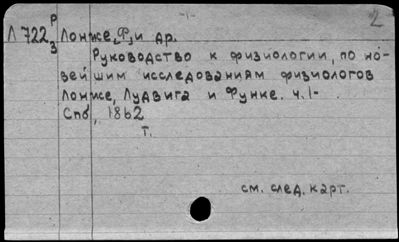 -1-
2
Р
Л 722 Лонже, Ф, и др.
З
Руководство к физиологии, по но-
вейшим исследованиям физиологов
Лонже, Лудвига и Функе. ч.1-
Спб, 1862
т.
см. след. карт.